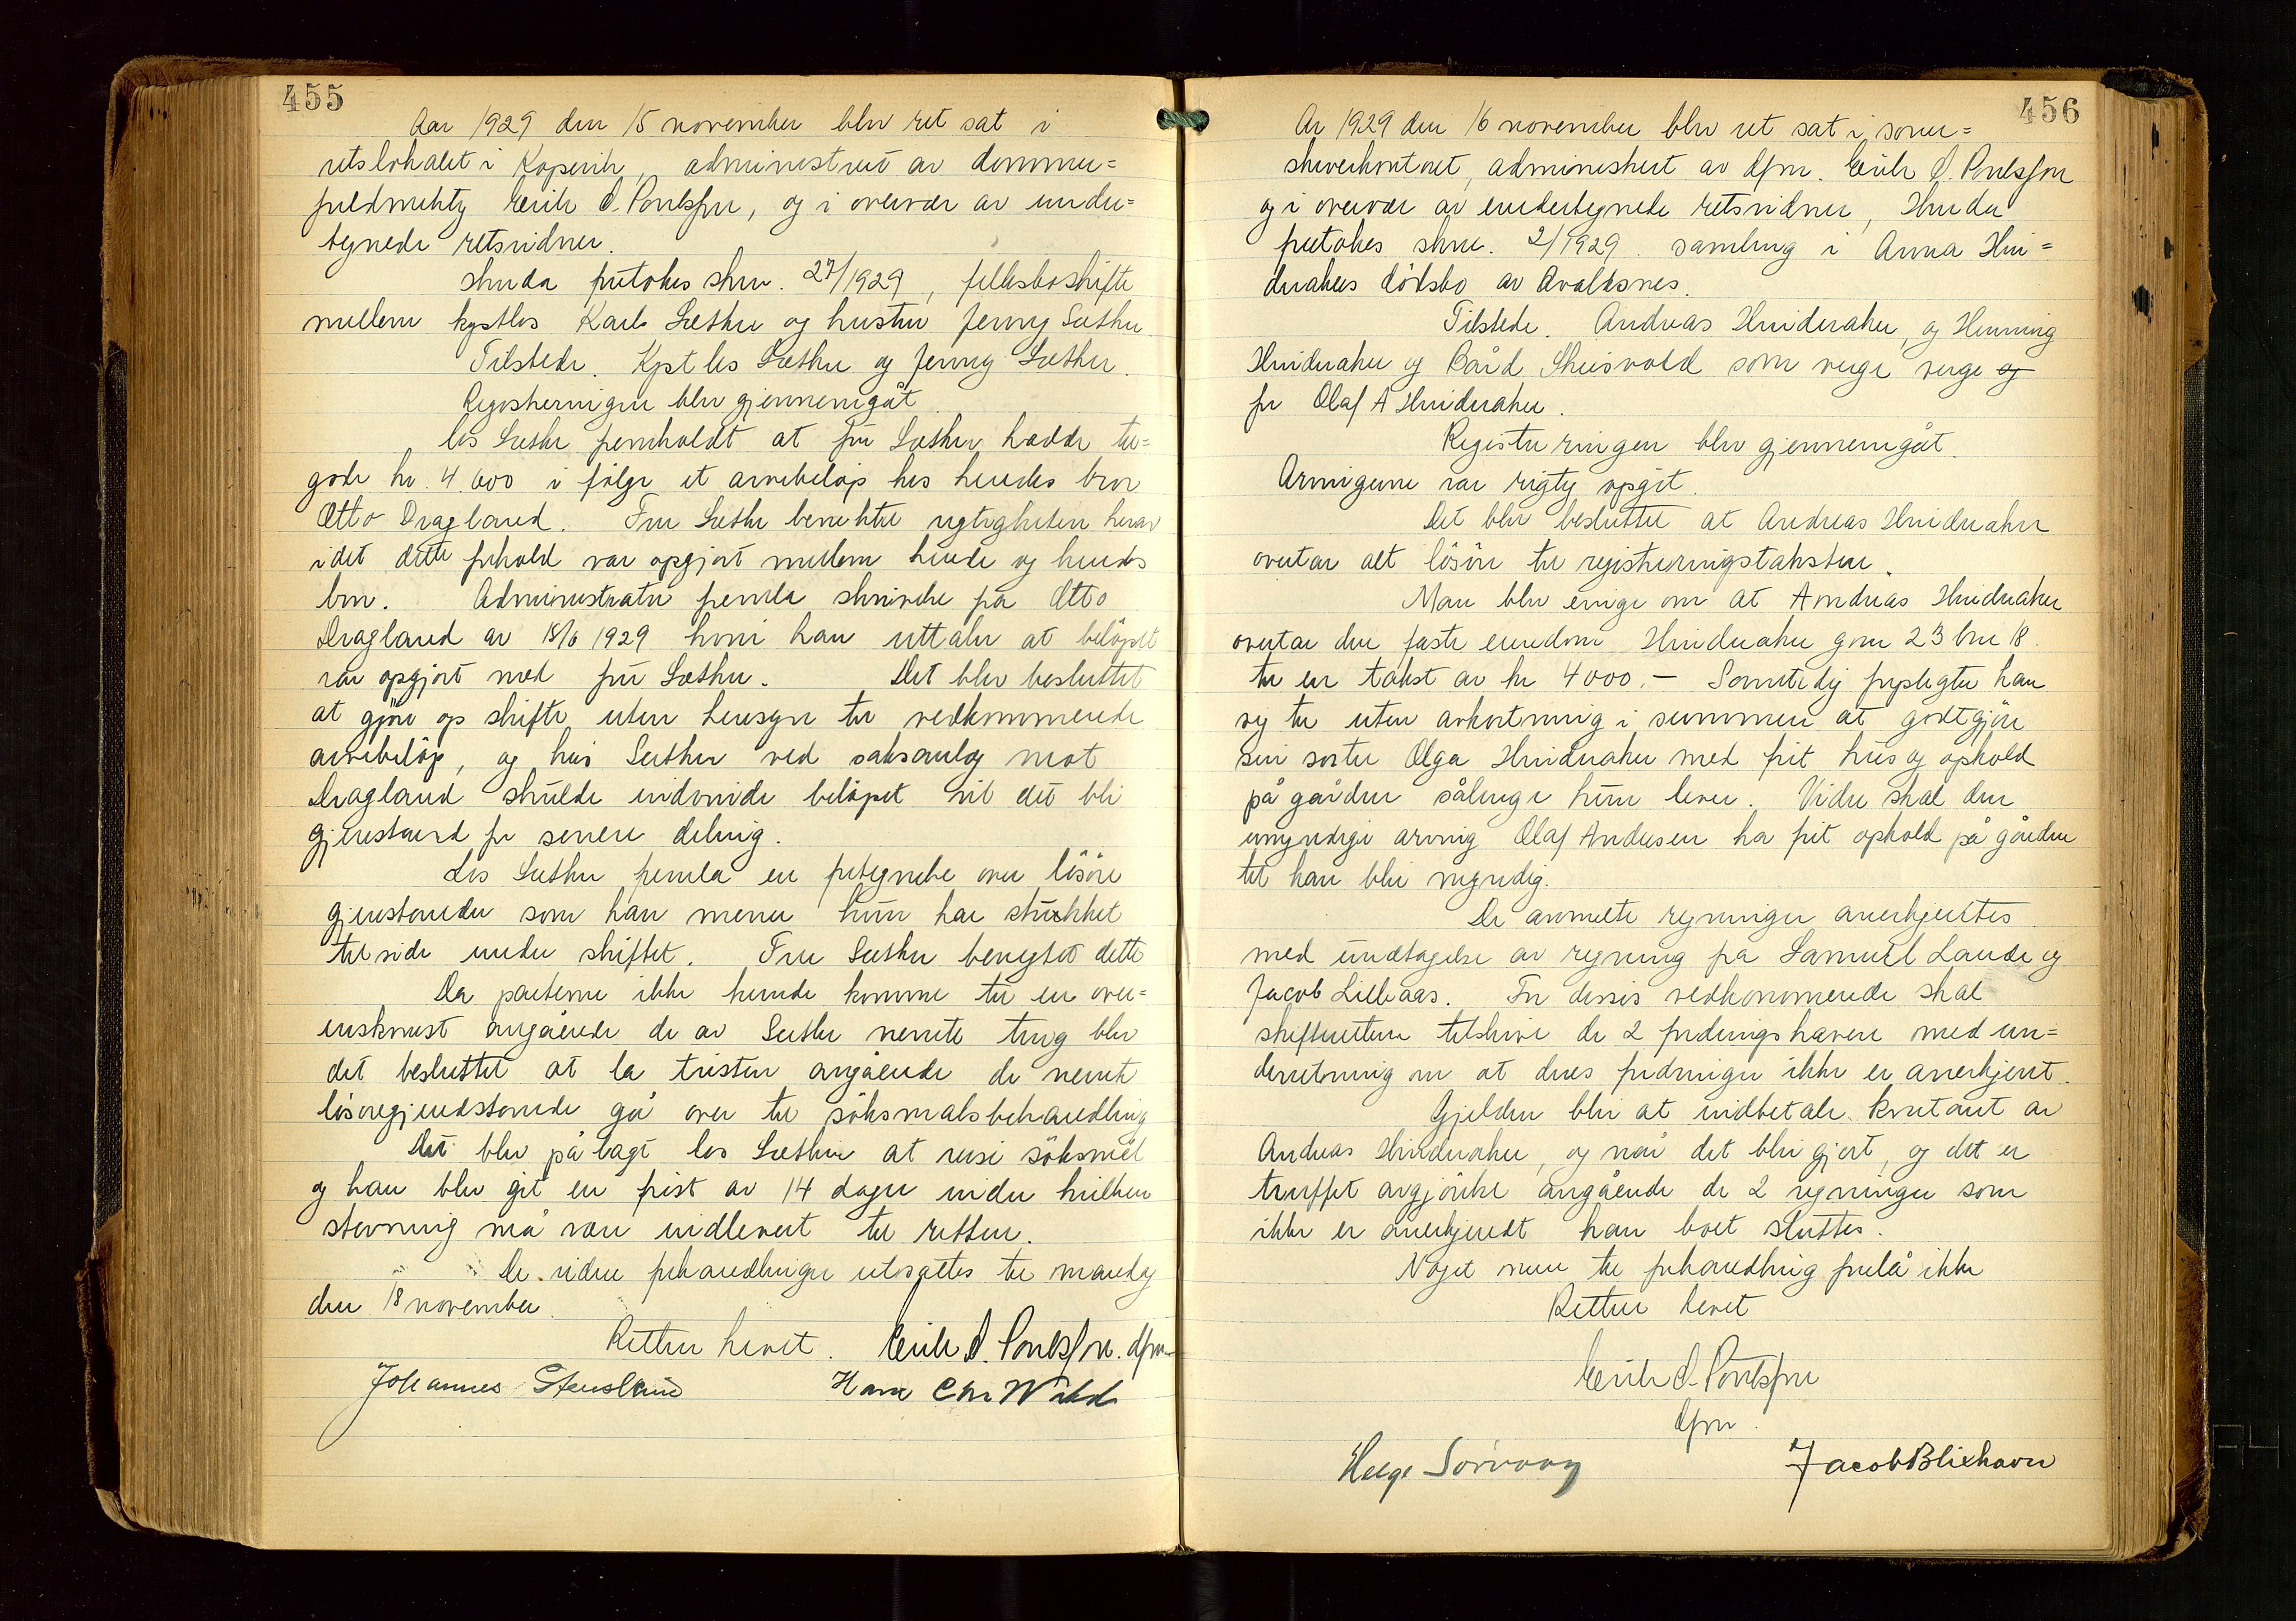 455
Aar 1929 den 15 november blev ret sat i
retslokalet i Kopervik, administrert av dommer=
fuldmektig Erik S. Poulsson, og i overvær av under=
tegnede retsvidner.
Hvoda foretokes skn. 27/1929, fellesboskifte
mellem kystlos Karl Sæther og hustru Jenny Sæther
Tilstede. Kystlos Sæther og Jenny Sæther.
Registreringen blev gjennemgåt.
Los Sæther fremholdt at fru Sæther hadde til=
gode kr. 4.600 i følge et arvebeløp hos hendes bror
Otto Dragland. Fru Sæther benektet rigtigheten herav
idet dette forhold var opgjort mellem hende og hendes
bror. Administrator fremla skrivelse fra Otto
Dragland av 18/6 1929 hvori han uttaler at beløpet
var opgjort med fru Sæther. Det blev besluttet
at gjøre op skifte uten hensyn til vedkommende
arvebeløp, og hvis Sæther ved saksanlæg mot
Dragland skulde indvinde beløpet vil det bli
gjenstand for senere deling.
Los Sæther fremla en fortegnelse over løsøre
gjenstander som han mener hun har stukket
tilside under skiftet. Fru Sæther benegtet dette
Da parterne ikke kunde komme til en over=
enskomst angående de av Sæther nevnte ting blev
det besluttet at la tvisten angående de nevnte
løsøregjendstande gå over til søksmålsbehandling
Det blev pålagt los Sæther at reise søksmål
og han blev git en frist av 14 dager inden hvilken
stevning må være indlevert til retten.
De videre forhandlinger utsattes til mandag
den 18 november.
Retten hevet. Erik S. Poulsson. dfm.
Johannes Stensland Hans Chr Wikd
456
Ar 1929 den 16 november blev ret sat i soren=
skriverkontoret, administrert av dfm. Erik S. Poulsson
og i overvær av undertegnede retsvidner, Hvoda
foretokes skn. 2/1929. samling i Anna Hin=
derakers dødsbo av Avaldsnes.
Tilstede. Andreas Hinderaker, og Henning
Hinderaker og Bård Skeisvold som verge verge og
for Olaf A Hinderaker.
Registreringen blev gjennemgåt.
Arvingerne var rigtig opgit.
Det blev besluttet at Andreas Hinderaker
overtar alt løsøre til registreringstaksten.
Man blev enige om at Andreas Hinderaker
overtar den faste eiendom Hinderaker gnr 23 bnr 18.
til en takst av kr 4000.- Samtidig forpligter han
sig til uten avkortning i summen at godtgjøre
sin søster Olga Hinderaker med frit hus og ophold
på gården sålenge hun lever. Videre skal den
umyndige arving Olaf Andersen ha frit ophold på gården
til han blir myndig.
De anmeldte regninger anerkjentes
med undtagelse av regning fra Samuel Lande og
Jacob Lillraas. For disses vedkommende skal
skifteretten tilskrive de 2 fordringshavere med un=
derretning om at deres fordringer ikke er anerkjent.
Gjelden blir at indbetale kontant av
Andreas Hinderaker, og når det blir gjort, og det er
truffet avgjørelse angående de 2 regninger som
ikke er anerkjendt kan boet sluttes.
Noget mere til forhandling forelå ikke
Retten hevet
Erik S. Poulsson
dfm.
Helge Sørvaag Jacob Blixhavn